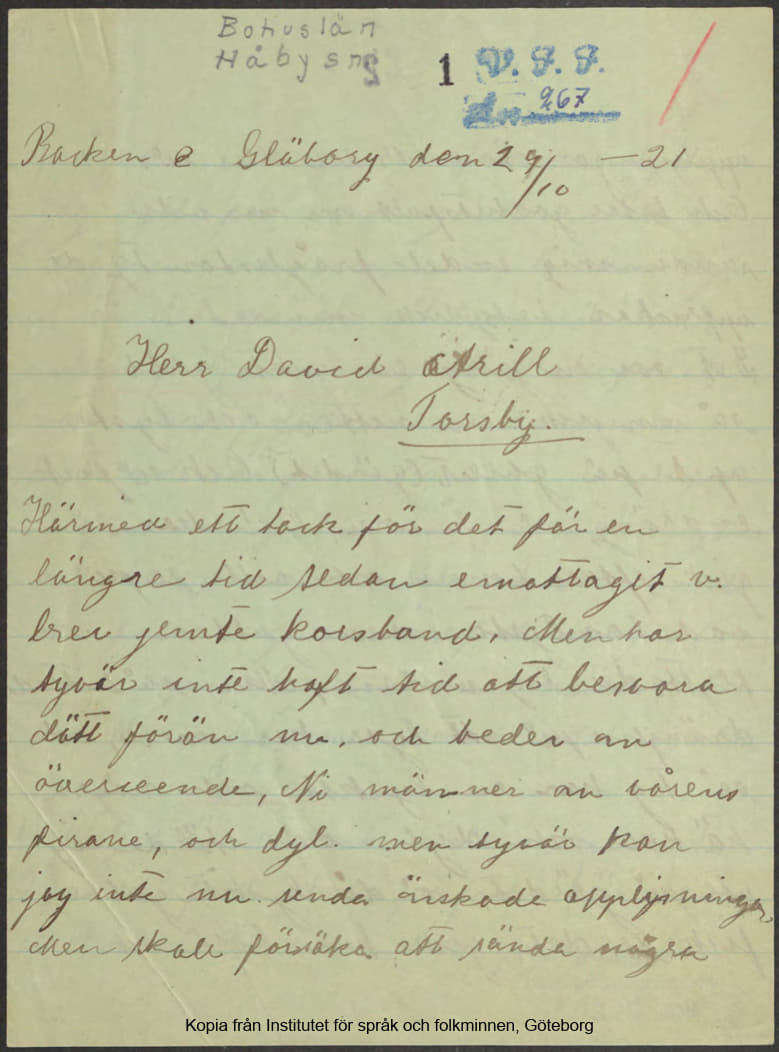 Bohuslän
Håby sn
1 V. F. F.
267
Backen Gläborg den 29/10 —21
Herr David Årill
Torsby.
Härmed ett tack för det för en
längre tid sedan emottagit v.
brev jemte korsband. Men har
tyvär inte haft tid att besvara
dätt förän nu. och beder om
överseende, Ni mämner om vårens
firane, och dyl. men tyvär kan
jag inte nu senda önskade opplysningar
Men skall försöka att sända några
Kopia från Institutet för språk och folkminnen, Göteborg